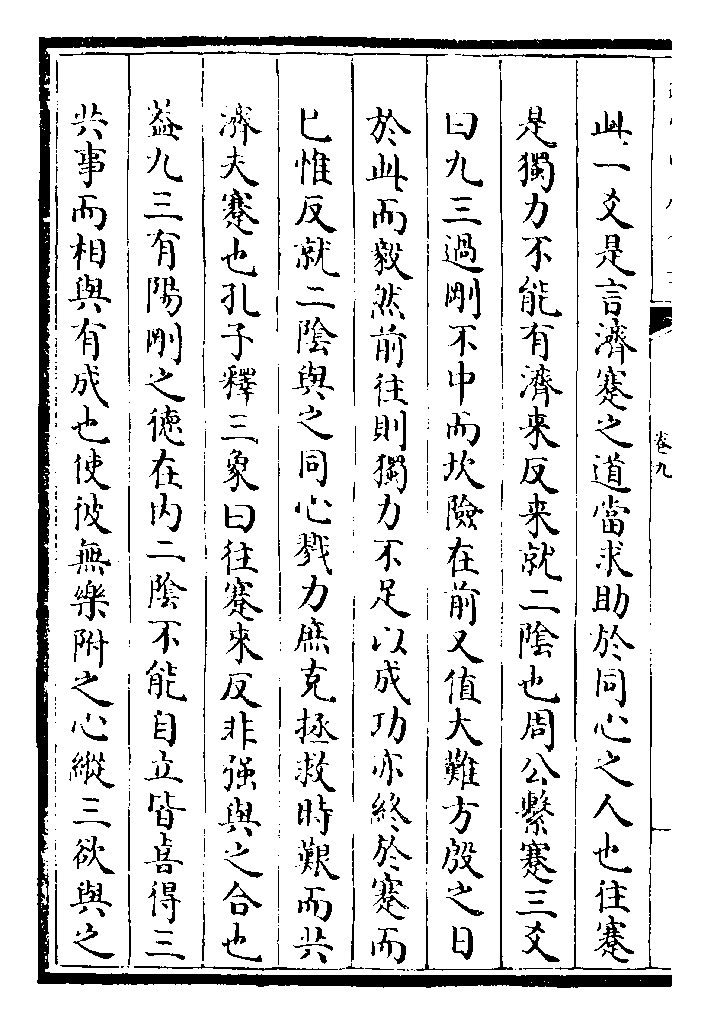 卷九
此一爻是言濟蹇之道當求助於同心之人也往蹇
是獨力不能有濟來反来就二陰也周公繫蹇三爻
曰九三過剛不中而坎險在前又值大難方殷之日
於此而毅然前往則獨力不足以成功亦終於蹇而
已惟反就二陰與之同心戮力庶克拯救時艱而共
濟夫蹇也孔子釋三象曰往蹇來反非强與之合也
葢九三有陽剛之德在内二陰不能自立皆喜得三
共事而相與有成也使彼無樂附之心縱三欲與之